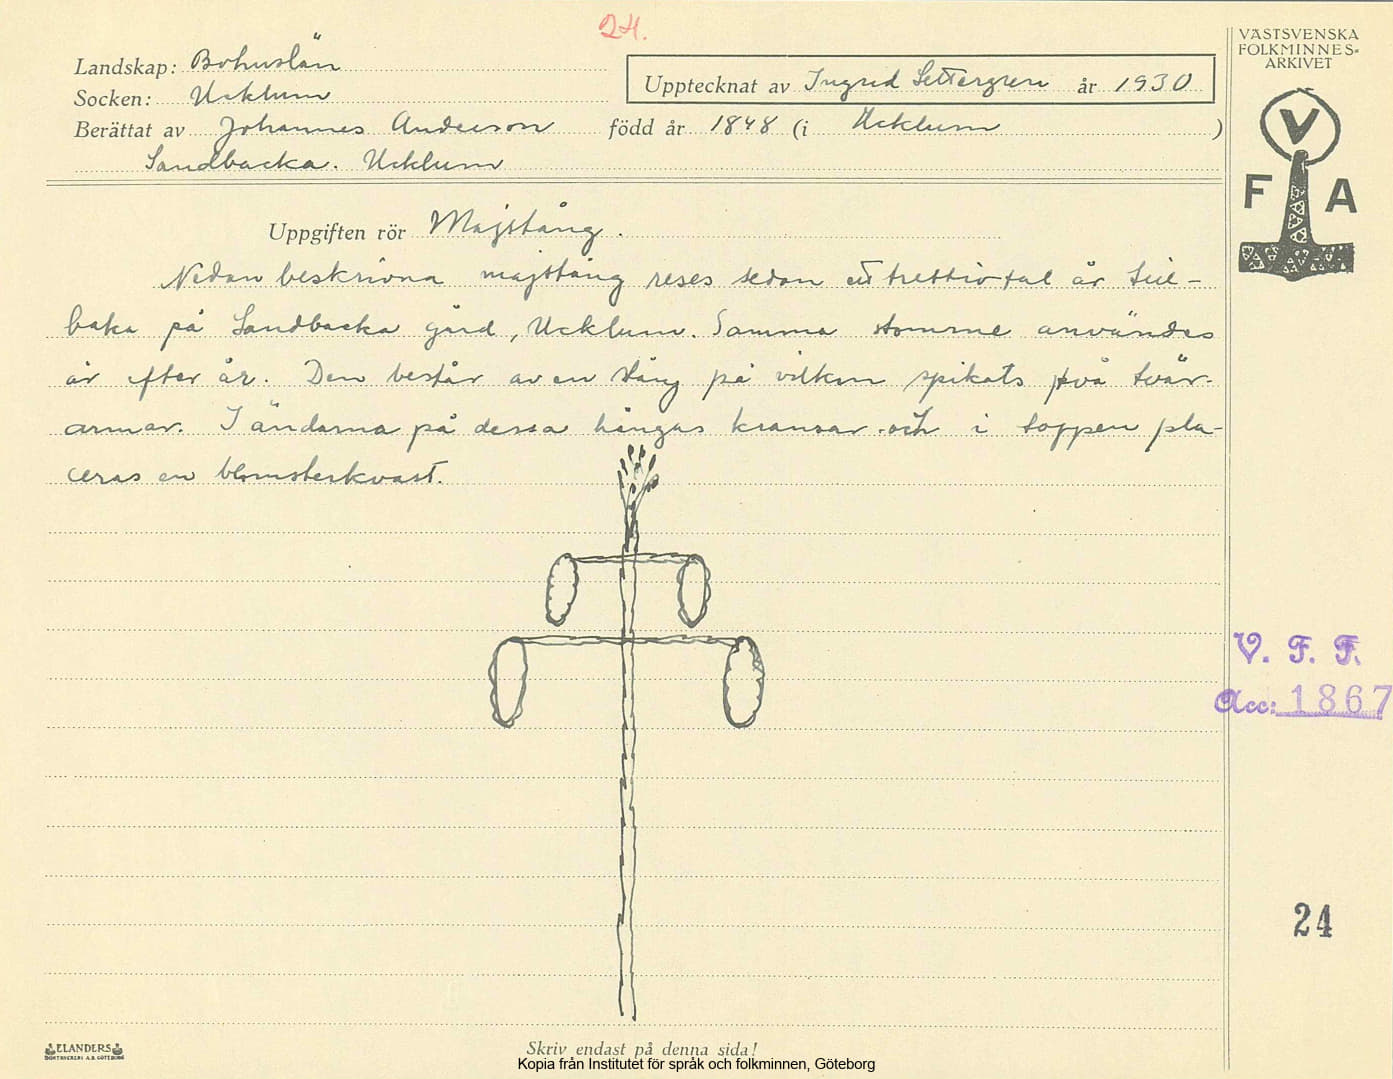 24.
VÄSTSVENSKA
FOLKMINNES-
ARKIVET
Landskap: Bohuslän
Upptecknat av Ingrid Settergren år 1930
Socken: Ucklum
Berättat av Johannes Anderson född år 1848 (i Ucklum )
Sandbacka. Ucklum
V
F A
Uppgiften rör Majstång.
Nedan beskrivna majstång reses sedan ett trettiotal år till-
baka på Sandbacka gård, Ucklum. Samma stomme användes
år efter år. Den består av en stång på vilken spikats två tvär-
armar. I ändarna på dessa hängas kransar och i toppen pla-
ceras en blomsterkvast.
V. F. F.
Acc: 1867
24
ELANDERS
BOKTRYCKERI A.B. GÖTEBORG
Skriv endast på denna sida!
Kopia från Institutet för språk och folkminnen, Göteborg